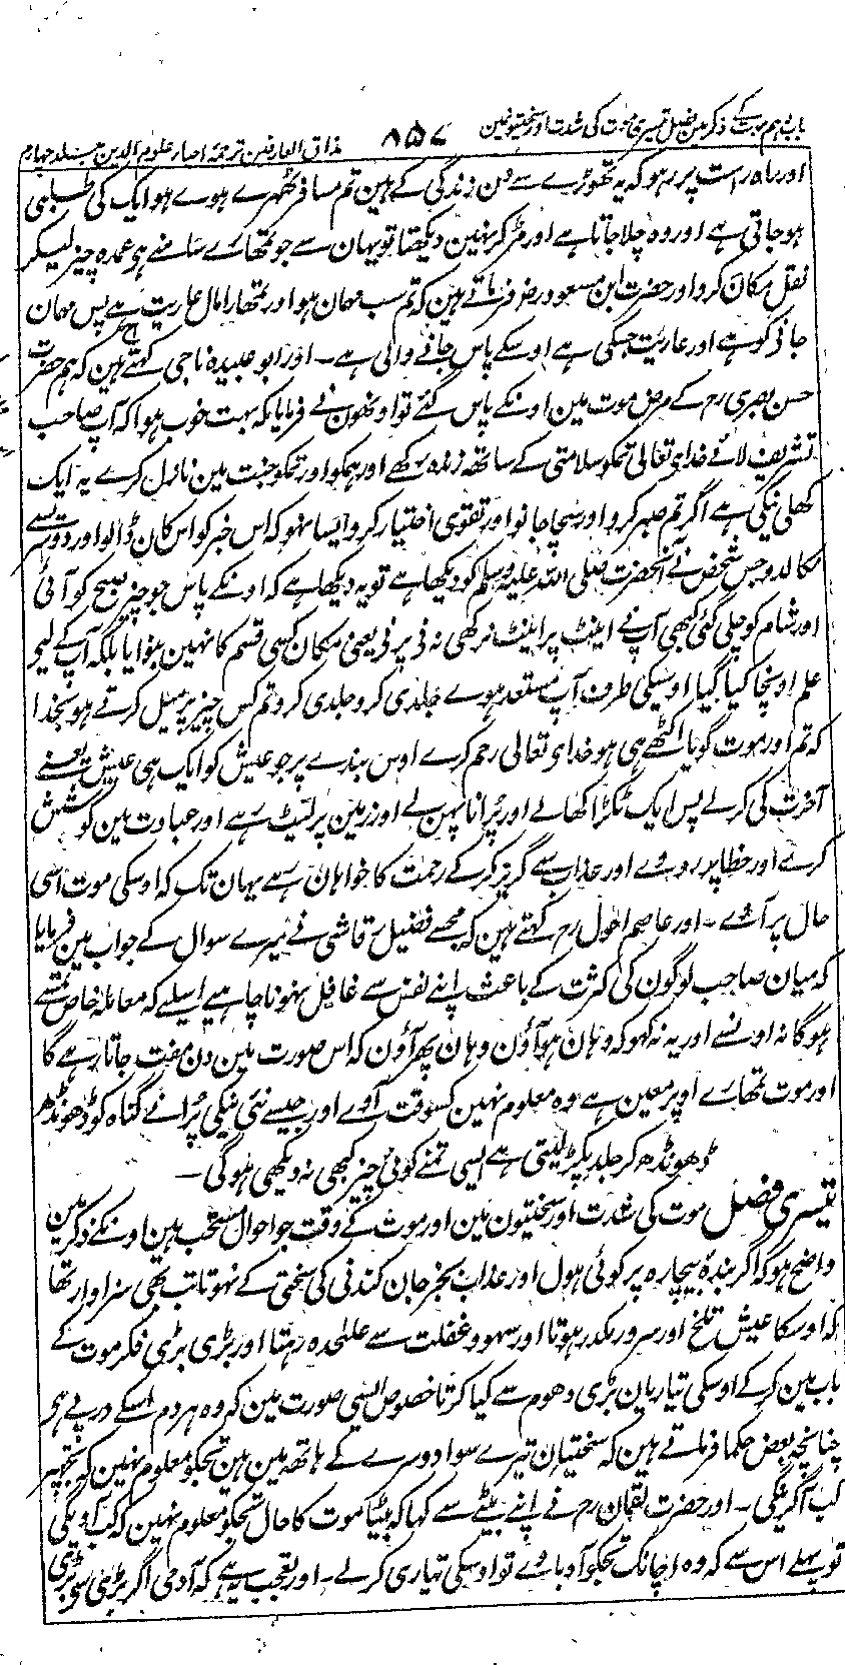 باب دہم موت کے ذکر مین فصل تیسری موت کی شدت اور سختیونمین ۸۵۷ مذاق العارفین ترجمہ احیاء علوم الدین جلد چہارم
اور راہ راست پر رہو کہ یہ تھوڑے سے دن زندگی کے ہین تم مسافر ٹھہرے ہوے ہو ایک کی طلبی
ہو جاتی ہے اور وہ چلا جاتا ہے اور مڑ کر نہین دیکھتا تو یہان سے جو تمھارے سامنے ہی عمدہ چیز لیکر
نقل مکان کرو اور حضرت ابن مسعود رض فرماتے ہین کہ تم سب مہمان ہو اور تمھارا مال عاریت ہے پس مہمان
جانیکو ہے اور عاریت جسکی ہے اوسکے پاس جانے والی ہے ۔ اور ابو عبیدہ ناجی کہتے ہین کہ ہم حضرت
حسن بصری رح کے مرض موت مین اونکے پاس گئے تو اونھون نے فرمایا کہ بہت خوب ہوا کہ آپ صاحب
تشریف لائے خدای تعالی تمکو سلامتی کے ساتھ زندہ رکھے اور ہمکو اور تمکو جنت مین نازل کرے یہ ایک
کھلی نیکی ہے اگر تم صبر کرو اور سچا جانو اور تقوی اختیار کرو ایسا نہو کہ اس خبر کو اس کان ڈالو اور دوسرے سے
نکالدو جس شخص نے آنحضرت صلی اللہ علیہ وسلم کو دیکھا ہے تو یہ دیکھا ہے کہ اونکے پاس جو چیز صبح کو آئی
اور شام کو چلی گئی کبھی آپ نے اینٹ پر اینٹ نرکھی نہ نی پر نی یعنی مکان کسی قسم کا نہین بنوایا بلکہ آپ کے لیے
علم اونچا کیا گیا اوسیکی طرف آپ مستعد ہوے جلدی کرو جلدی کرو تم کس چیز پر میل کرتے ہو بخدا
کہ تم اور موت گویا اکٹھے ہی ہو خدای تعالی رحم کرے اوس بندے پر جو عیش کو ایک ہی عیش یعنے
آخرت کی کرلے پس ایک ٹکڑا کھالے اور پرانا پہن لے اور زمین پر لیٹ رہے اور عبادت مین کوشش
کرے اور خطا پر رووے اور عذاب سے گریز کرکے رحمت کا خواہان رہے یہان تک کہ اوسکی موت اسی
حال پر آوے ۔ اور عاصم احول رح کہتے ہین کہ مجھسے فضیل رقاشی نے میرے سوال کے جواب مین فرمایا
کہ میان صاحب لوگون کی کثرت کے باعث اپنے نفس سے غافل نہونا چاہیے اسلیے کہ معاملہ خاص تمسے
ہوگا نہ اونسے اور یہ نہ کہو کہ وہان ہو آؤن وہان پھر آؤن کہ اس صورت مین دن مفت جاتا رہے گا
اور موت تمھارے اوپر معین ہے وہ معلوم نہین کسوقت آوے اور جیسے نئی نیکی پرانے گناہ کو ڈھونڈھ
ڈھونڈھ کر جلد پکڑ لیتی ہے ایسی تمنے کوئی چیز کبھی نہ دیکھی ہوگی ۔
تیسری فصل موت کی شدت اور سختیون مین اور موت کے وقت جو احوال مستحب ہین اونکے ذکر مین
واضح ہو کہ اگر بندۂ بیچارہ پر کوئی ہول اور عذاب بجز جان کندنی کی سختی کے نہوتا تب بھی سزاوار تھا
کہ اوسکا عیش تلخ اور سرور مکدر ہوتا اور سہو و غفلت سے علٰحدہ رہتا اور بڑی بڑی فکر موت کے
باب مین کرکے اوسکی تیاریان بڑی دھوم سے کیا کرتا خصوص ایسی صورت مین کہ وہ ہر دم اسکے درپے ہو
چنانچہ بعض حکما فرماتے ہین کہ سختیان تیرے سوا دوسرے کے ہاتھ مین ہین تجکو معلوم نہین کہ تجھپر
کب آگرینگی ۔ اور حضرت لقمان رح نے اپنے بیٹے سے کہا کہ بیٹا موت کا حال تجکو معلوم نہین کہ کب آویگی
تو پہلے اس سے کہ وہ اچانک تجکو آ دباوے تو اوسکی تیاری کرلے ۔ اور تعجب یہ ہے کہ آدمی اگر بڑی سی بڑی